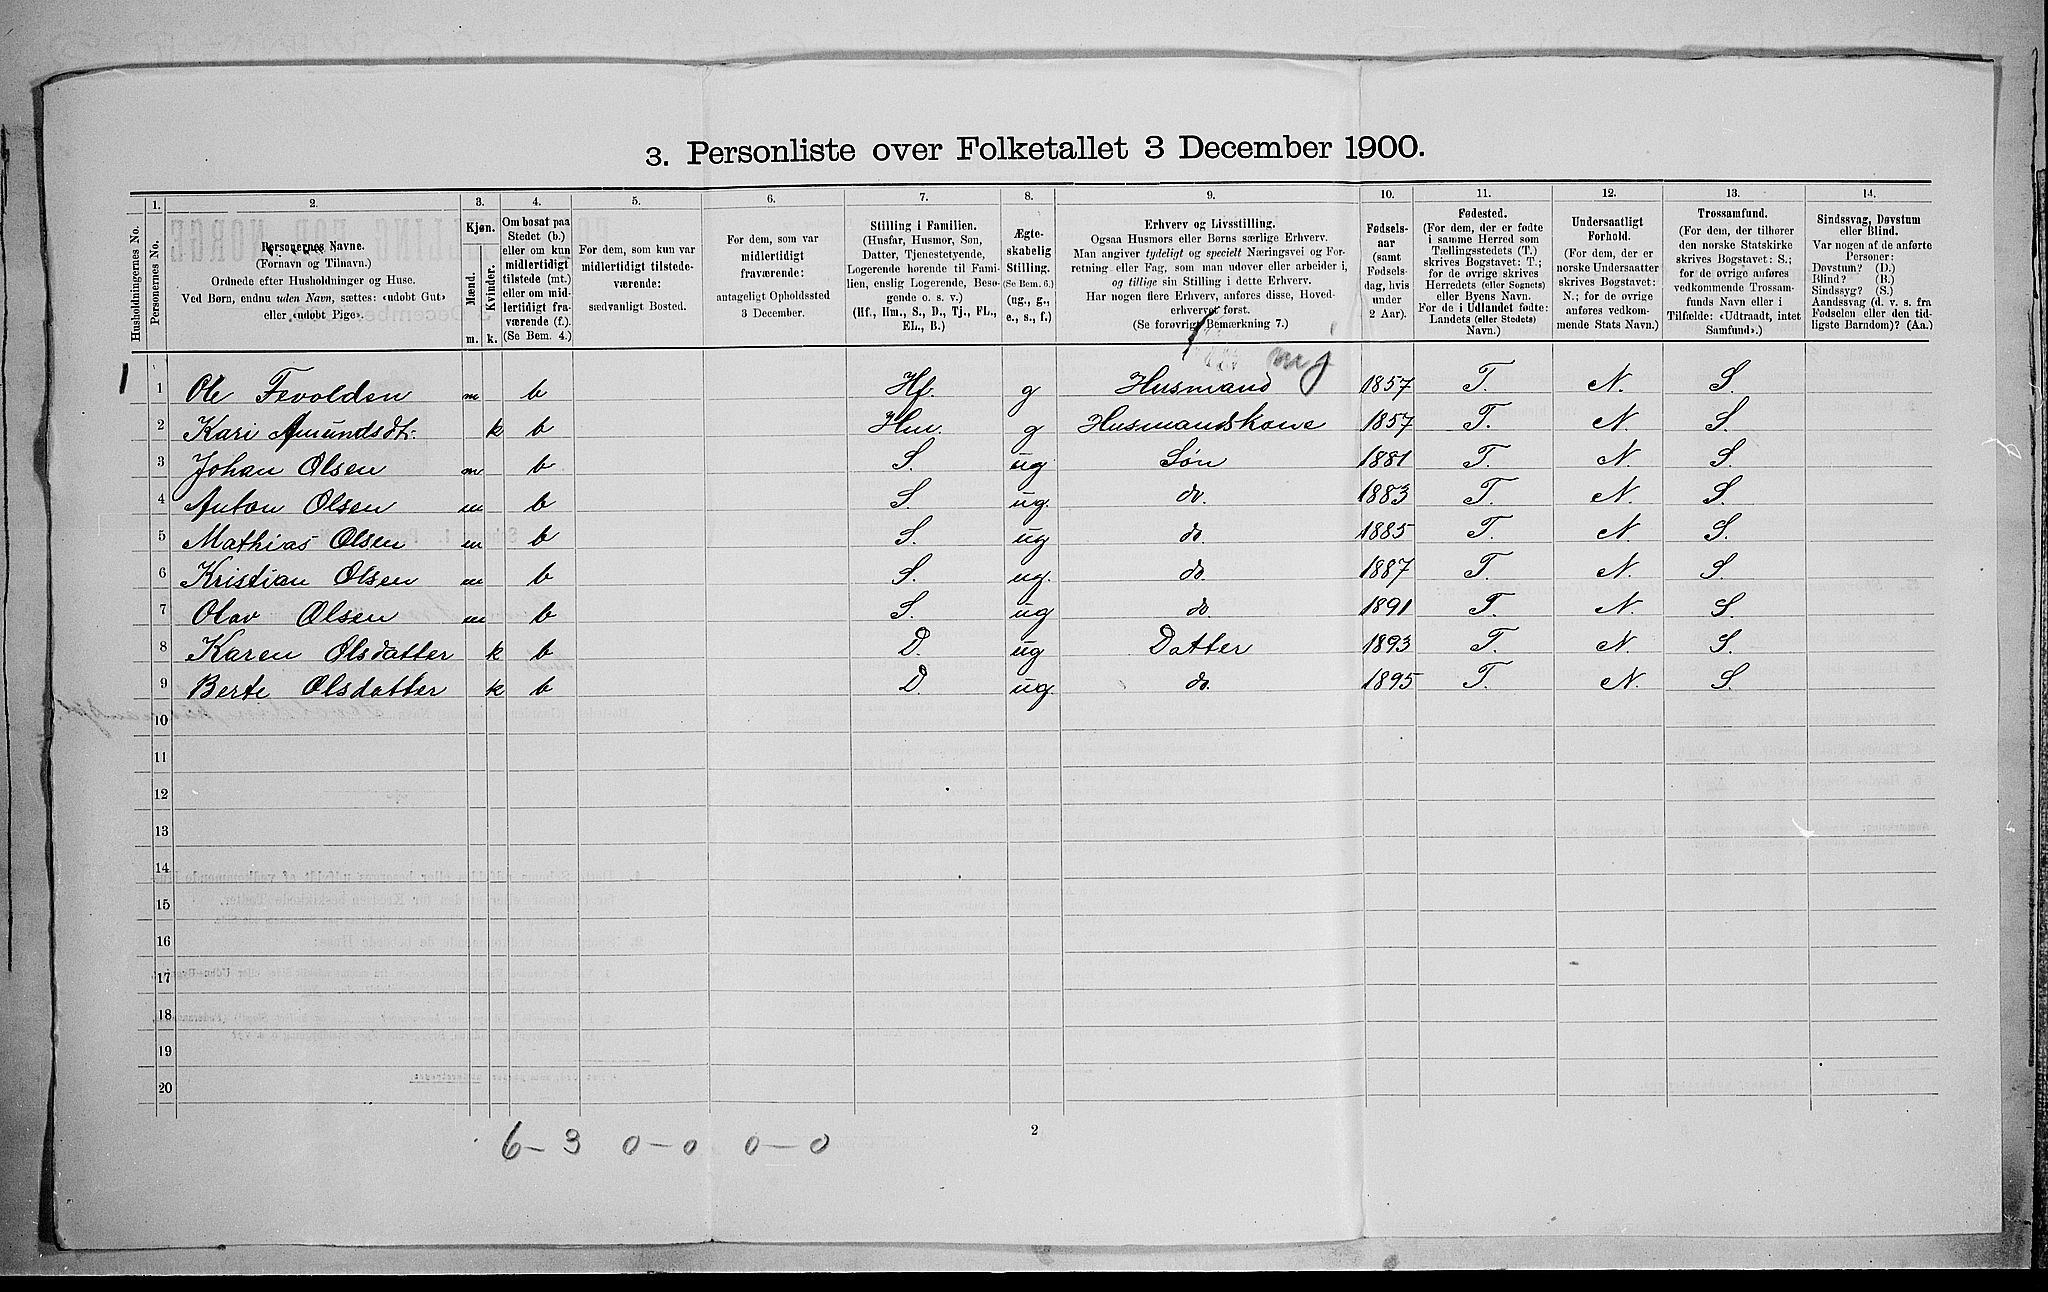 3. Personliste over Folketallet 3 December 1900.
1. 2. 3. 4. 5. 6. 7. 8. 9. 10. 11. 12. 13. 14.
Husholdningernes No.
Personernes No.
Personernes Navne.
(Fornavn og Tilnavn.)
Ordnede efter Husholdninger og Huse.
Ved Børn, endnu uden Navn, sættes: «udøbt Gut»
eller «udøbt Pige».
Kjøn.
Mænd.
Kvinder.
m. k.
Om bosat paa
Stedet (b.)
eller om kun
midlertidigt
tilstede (mt.)
eller om mid-
lertidigt fra-
værende (f.)
(Se Bem. 4.)
For dem, som kun var
midlertidigt tilstede-
værende:
sædvanligt Bosted.
For dem, som var
midlertidigt
fraværende:
antageligt Opholdssted
3 December.
Stilling i Familien.
(Husfar, Husmor, Søn,
Datter, Tjenestetyende,
Logerende hørende til Fami-
lien, enslig Logerende, Besø-
gende o. s. v.)
(Hf., Hm., S., D., Tj., FL.,
EL., B.)
Ægte-
skabelig
Stilling.
(Se Bem. 6.)
(ug., g.,
e., s., f.)
Erhverv og Livsstilling.
Ogsaa Husmors eller Børns særlige Erhverv.
Man angiver tydeligt og specielt Næringsvei og For-
retning eller Fag, som man udøver eller arbeider i,
og tillige sin Stilling i dette Erhverv.
Har nogen flere Erhverv, anføres disse, Hoved-
erhvervet først.
(Se forøvrigt Bemærkning 7.)
Fødsels-
aar
(samt
Fødsels-
dag, hvis
under
2 Aar).
Fødested.
(For dem, der er fødte
i samme Herred som
Tællingsstedets (T.)
skrives Bogstavet: T.;
for de øvrige skrives
Herredets (eller Sognets)
eller Byens Navn.
For de i Udlandet fødte:
Landets (eller Stedets)
Navn.)
Undersaatligt
Forhold.
(For dem, der er
norske Undersaatter
skrives Bogstavet:
N.; for de øvrige
anføres vedkom-
mende Stats Navn.)
Trossamfund.
(For dem, der tilhører
den norske Statskirke
skrives Bogstavet: S.;
for de øvrige anføres
vedkommende Trossam-
funds Navn eller i
Tilfælde: «Udtraadt, intet
Samfund».)
Sindssvag, Døvstum
eller Blind.
Var nogen af de anførte
Personer:
Døvstum? (D.)
Blind? (B.)
Sindssyg? (S.)
Aandssvag (d. v. s. fra
Fødselen eller den tid-
ligste Barndom)? (Aa.)
mj
1 1 Ole Fevolden m b Hf. g Husmand 1857 T. N. S.
2 Kari Amundsdt. k b Hm. g Husmandskone 1857 T. N. S.
3 Johan Olsen m b S. ug Søn 1881 T. N. S.
4 Anton Olsen m b S. ug. do. 1883 T. N. S.
5 Mathias Olsen m b S. ug do. 1885 T. N. S.
6 Kristian Olsen m b S. ug. do. 1887 T. N. S.
7 Olav Olsen m b S. ug do 1891 T. N. S.
8 Karen Olsdatter k b D. ug Datter 1893 T. N. S.
9 Berte Olsdatter k b D ug. do. 1895 T. N. S.
10
11
12
13
14
15
16
17
18
19
20
6-3 0-0 0-0
2